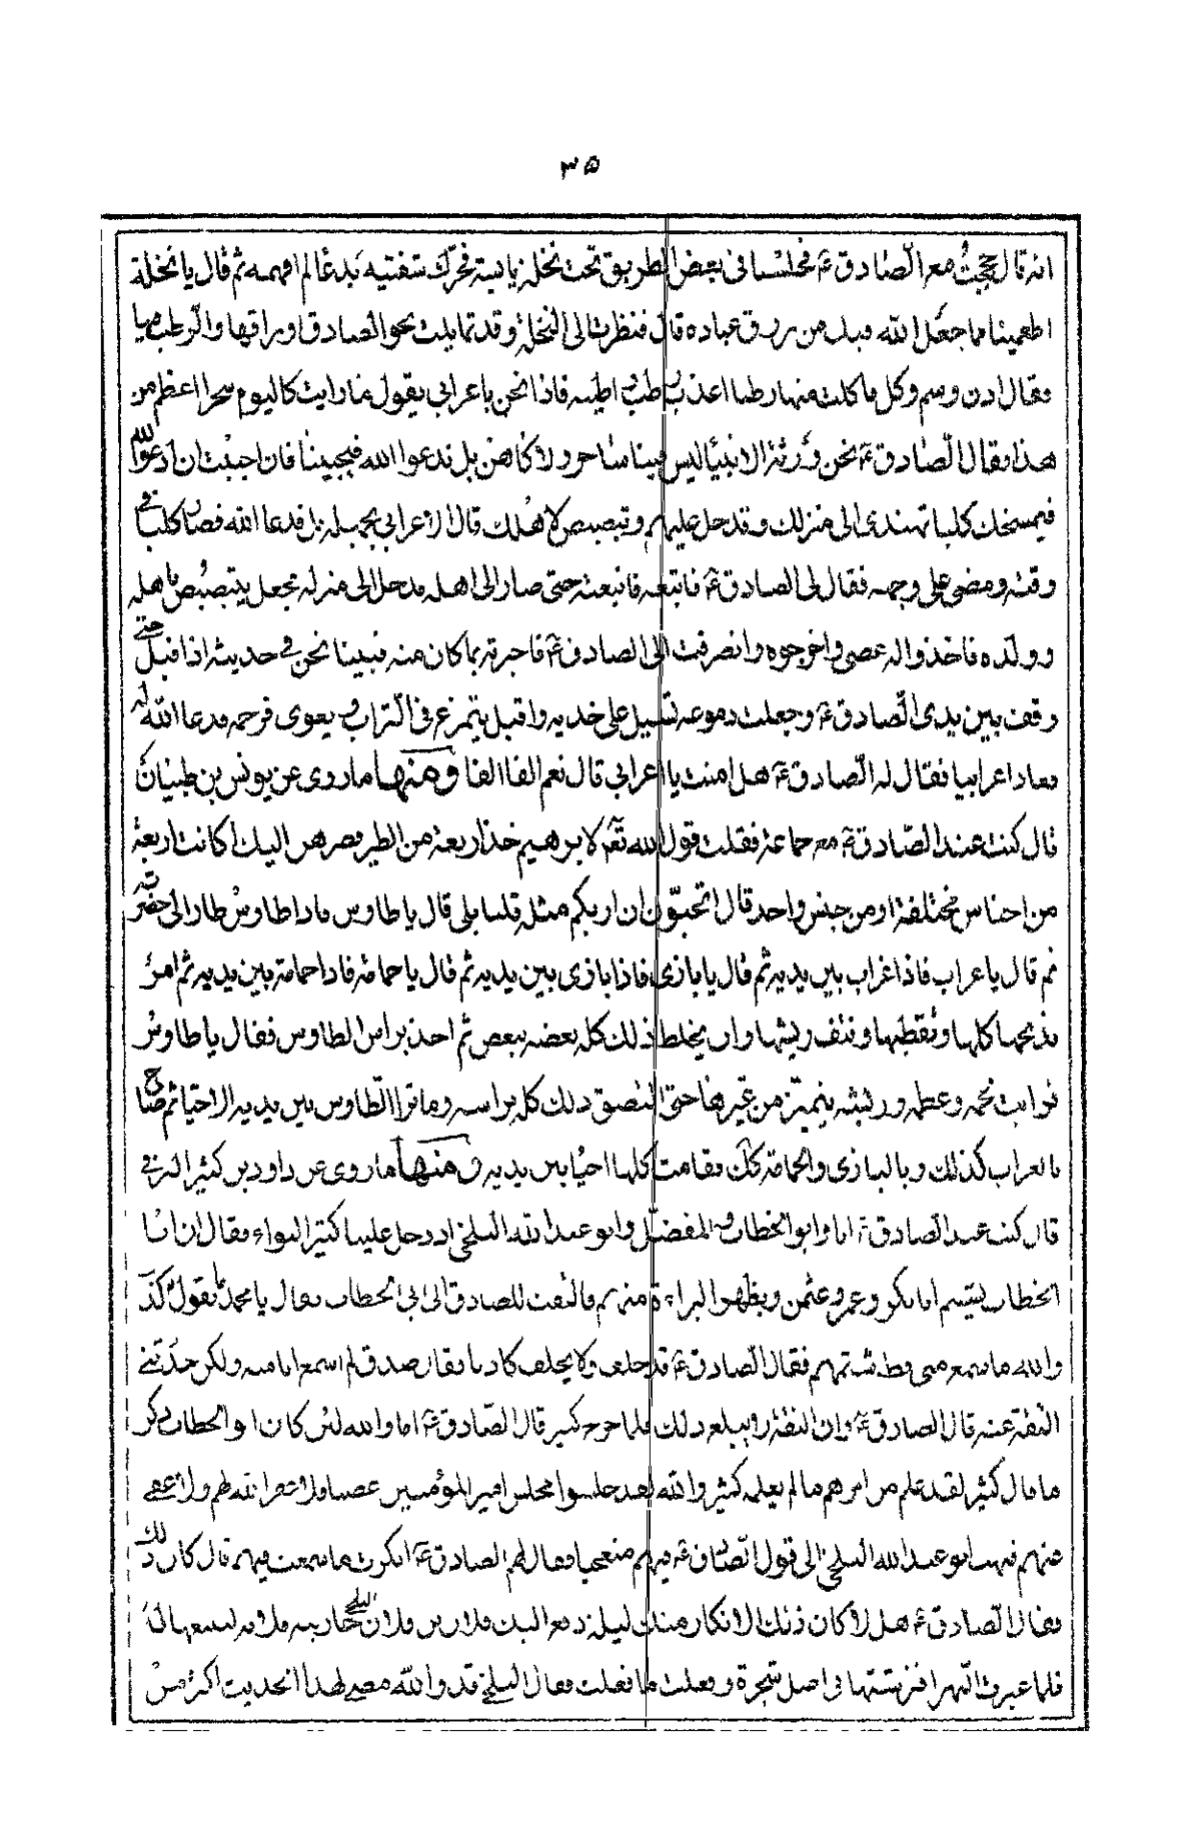 ۳۵
انه قال حججت مع الصادق ع فجلسنا فى بعض الطريق تحت نخلة يابسة فحرك شفتيه بدعا لم افهمه ثم قال يا نخلة
اطعمينا مما جعل الله فيك من رزق عباده قال فنظرت الى النخلة و قد تمايلت نحو الصادق ع اوراقها والرطب
فقال ادن وسم وكل فاكلت منها رطبا اعذب رطب اطيبه فاذا نحن باعرابى يقول ما رايت كاليوم سحرا اعظم من
هذا فقال الصادق ع نحن ورثة الانبيا ليس فينا ساحر ولا كاهن بل ندعوا الله فيجيبنا فان احببت ان ادعو الله
فيمسخك كلبا تهتدى الى منزلك و تدخل عليهم و تبصبص لاهلك قال الاعرابى بجهله بلى فدعا الله فصار كلبا فى
وقته و مضى على وجهه فقال لى الصادق ع فاتبعه فاتبعته حتى صار الى اهله فدخل الى منزله فجعل يتبصبص باهله
وولده فاخذوا له عصى واخرجوه وانصرفت الى الصادق ع فاخبرته بما كان منه فبينا نحن فى حديثه اذ اقبل حتى
وقف بين يدى الصادق ع وجعلت دموعه تسيل على خديه واقبل يتمرغ فى التراب و يعوى فرحمه فدعا الله له
فعاد اعرابيا فقال له الصادق ع هل امنت يا اعرابى قال نعم الفا الفا ومنها ما روى عن يونس بن ظبيان
قال كنت عند الصادق ع مع جماعة فقلت قول الله تع لابرهيم خذ اربعة من الطير فصرهن اليك اكانت اربعة
من اجناس مختلفة او من جنس واحد قال اتحبون ان اريكم مثله قلنا بلى قال يا طاوس فاذا طاوس طار الى حضرته
ثم قال يا غراب فاذا غراب بين يديه ثم قال يا بازى فاذا بازى بين يديه ثم قال يا حمامة فاذا حمامة بين يديه ثم امر
بذبحها كلها و تقطيعها و نتف ريشها وان يخلط ذلك كله بعضه ببعض ثم اخذ براس الطاوس فقال يا طاوس
فرايت لحمه وعظمه وريشه يتميز من غيرها حتى التصق ذلك كله براسه وقام الطاوس بين يديه الاحيا ثم صاح
بالغراب كذلك وبالبازى والحمامة كك فقامت كلها احيا بين يديه ومنها ما روى عن داود بن كثير الرقى
قال كنت عند الصادق ع انا و ابو الخطاب و المفضل و ابو عبد الله البلخى اذ دخل علينا كثير النواء فقال ان ابا
الخطاب يشتم ابا بكر و عمر و عثمن و يظهر البراءة منهم فالتفت الصادق الى ابى الخطاب فقال يا محمد ما تقول قال كذب
والله ما سمع منى قط شتمهم فقال الصادق ع قد حلف ولا يحلف كاذبا فقال صدق لم اسمع انا منه ولكن حدثنى
الثقة عنه قال الصادق ع وان الثقة لا يبلغ ذلك فلما خرج كثير قال الصادق ع اما والله لئن كان ابو الخطاب ذكر
ما قال كثير لقد علم من امرهم ما لم يعلمه كثير والله لقد جلسوا مجلس امير المؤمنين غصبا فلا غفر الله لهم ولا عفى
عنهم فبهت ابو عبد الله البلخى الى قول الصادق ع فيهم متعجبا فقال له الصادق ع انكرت ما سمعت فيهم قال كان ذلك
فقال الصادق ع هلا كان ذلك الانكار منك ليلة دفع اليك فلان بن فلان البلخى جاريته فلانه لتبيعها له
فلما عبرت النهر افترشتها فى اصل شجرة وفعلت ما فعلت فقال البلخى قد والله مضى لهذا الحديث اكثر من